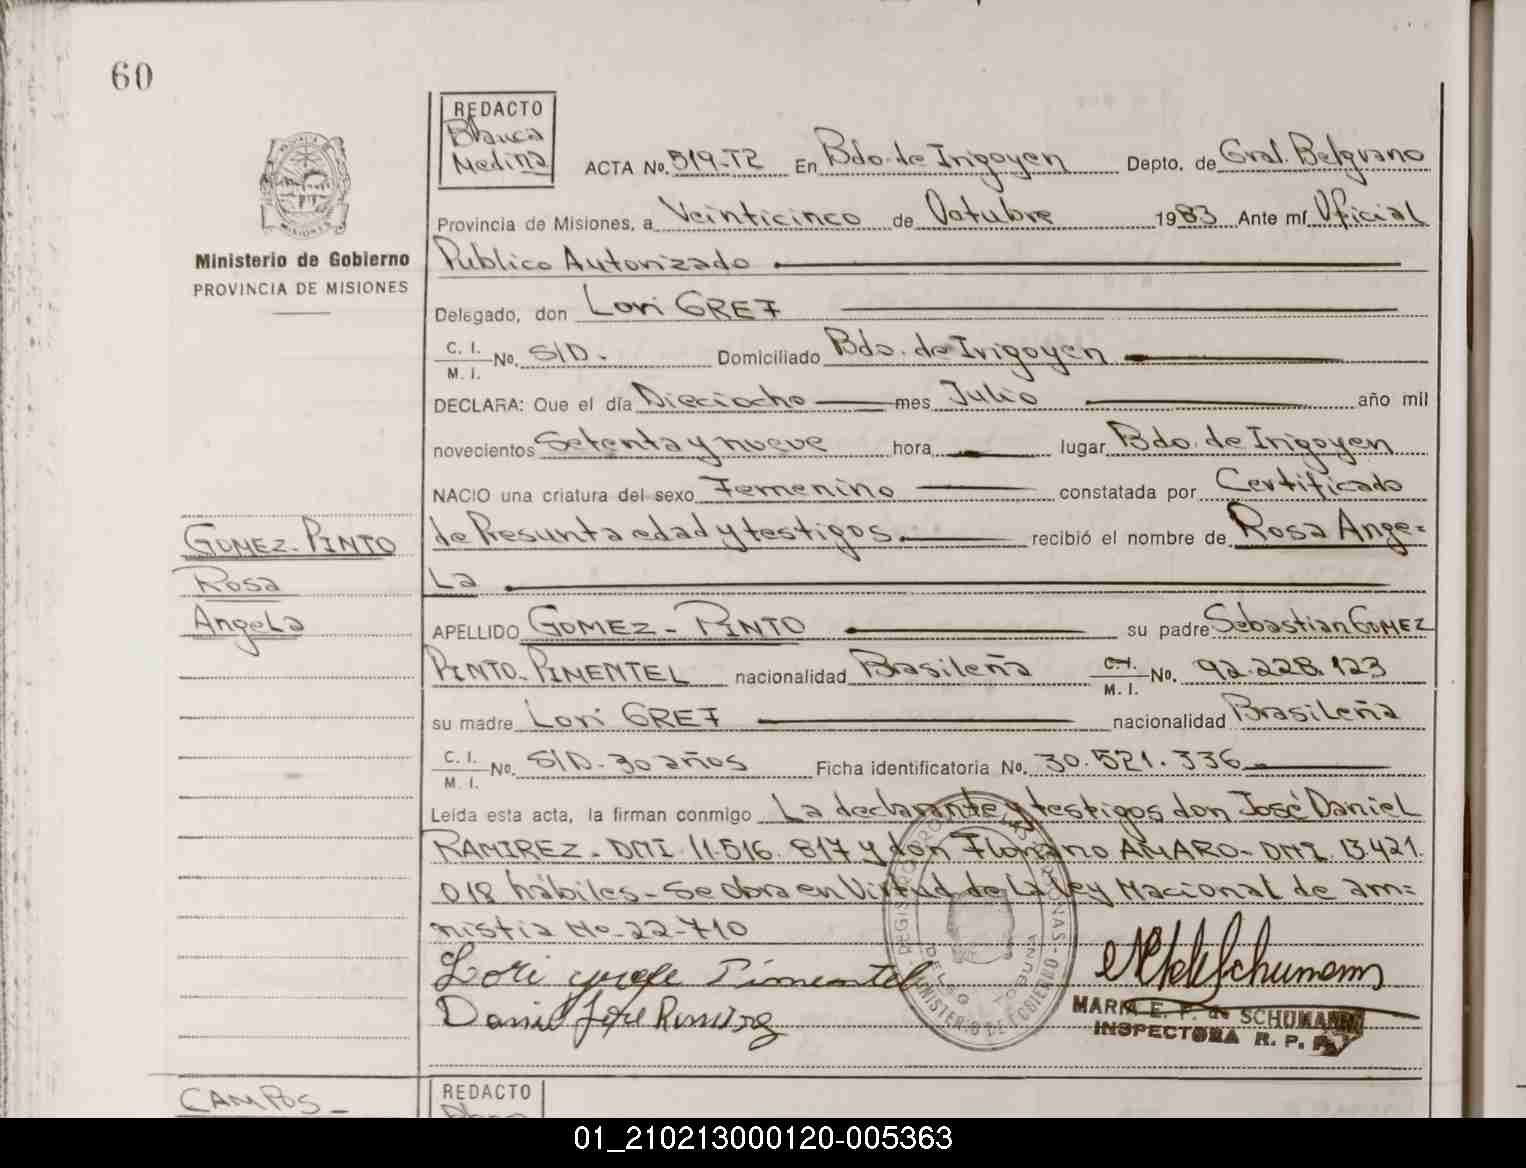 60
REDACTO
Blanca
Medina
ACTA No. 519-T2 En Bdo. de Irigoyen Depto. de Gral. Belgrano
Provincia de Misiones, a Veinticinco de Octubre 1983 Ante mí Oficial
Publico Autorizado
Ministerio de Gobierno
PROVINCIA DE MISIONES
Delegado, don Lori GREF
C. I.
M. I. No. S/D. Domiciliado Bdo. de Irigoyen
DECLARA: Que el día Dieciocho mes Julio año mil
novecientos Setenta y nueve hora lugar Bdo. de Irigoyen
NACIO una criatura del sexo Femenino constatada por Certificado
de Presunta edad y testigos. recibió el nombre de Rosa Ange=
La
GOMEZ-PINTO
Rosa
Angela
APELLIDO GOMEZ-PINTO su padre Sebastian GOMEZ
PINTO-PIMENTEL nacionalidad Brasileña M. I. No. 92.228.123
su madre Lori GREF nacionalidad Brasileña
C. I.
M. I. No. S/D-30 años Ficha identificatoria No. 30.521.336
Leída esta acta, la firman conmigo La declarante y testigos don José Daniel
RAMIREZ-DNI. 11.516.817 y don Floriano AMARO-DNI. 13.421.
018 hábiles-Se obra en Virtud de La Ley Nacional de am=
nistia No-22-710
Lori grefe Pimentel
Daniel José
MARIA E. P. de SCHUMANN
INSPECTORA R. P. P.
MINISTERIO DE GOBIERNO
CAMPOS-
REDACTO
01_210213000120-005363